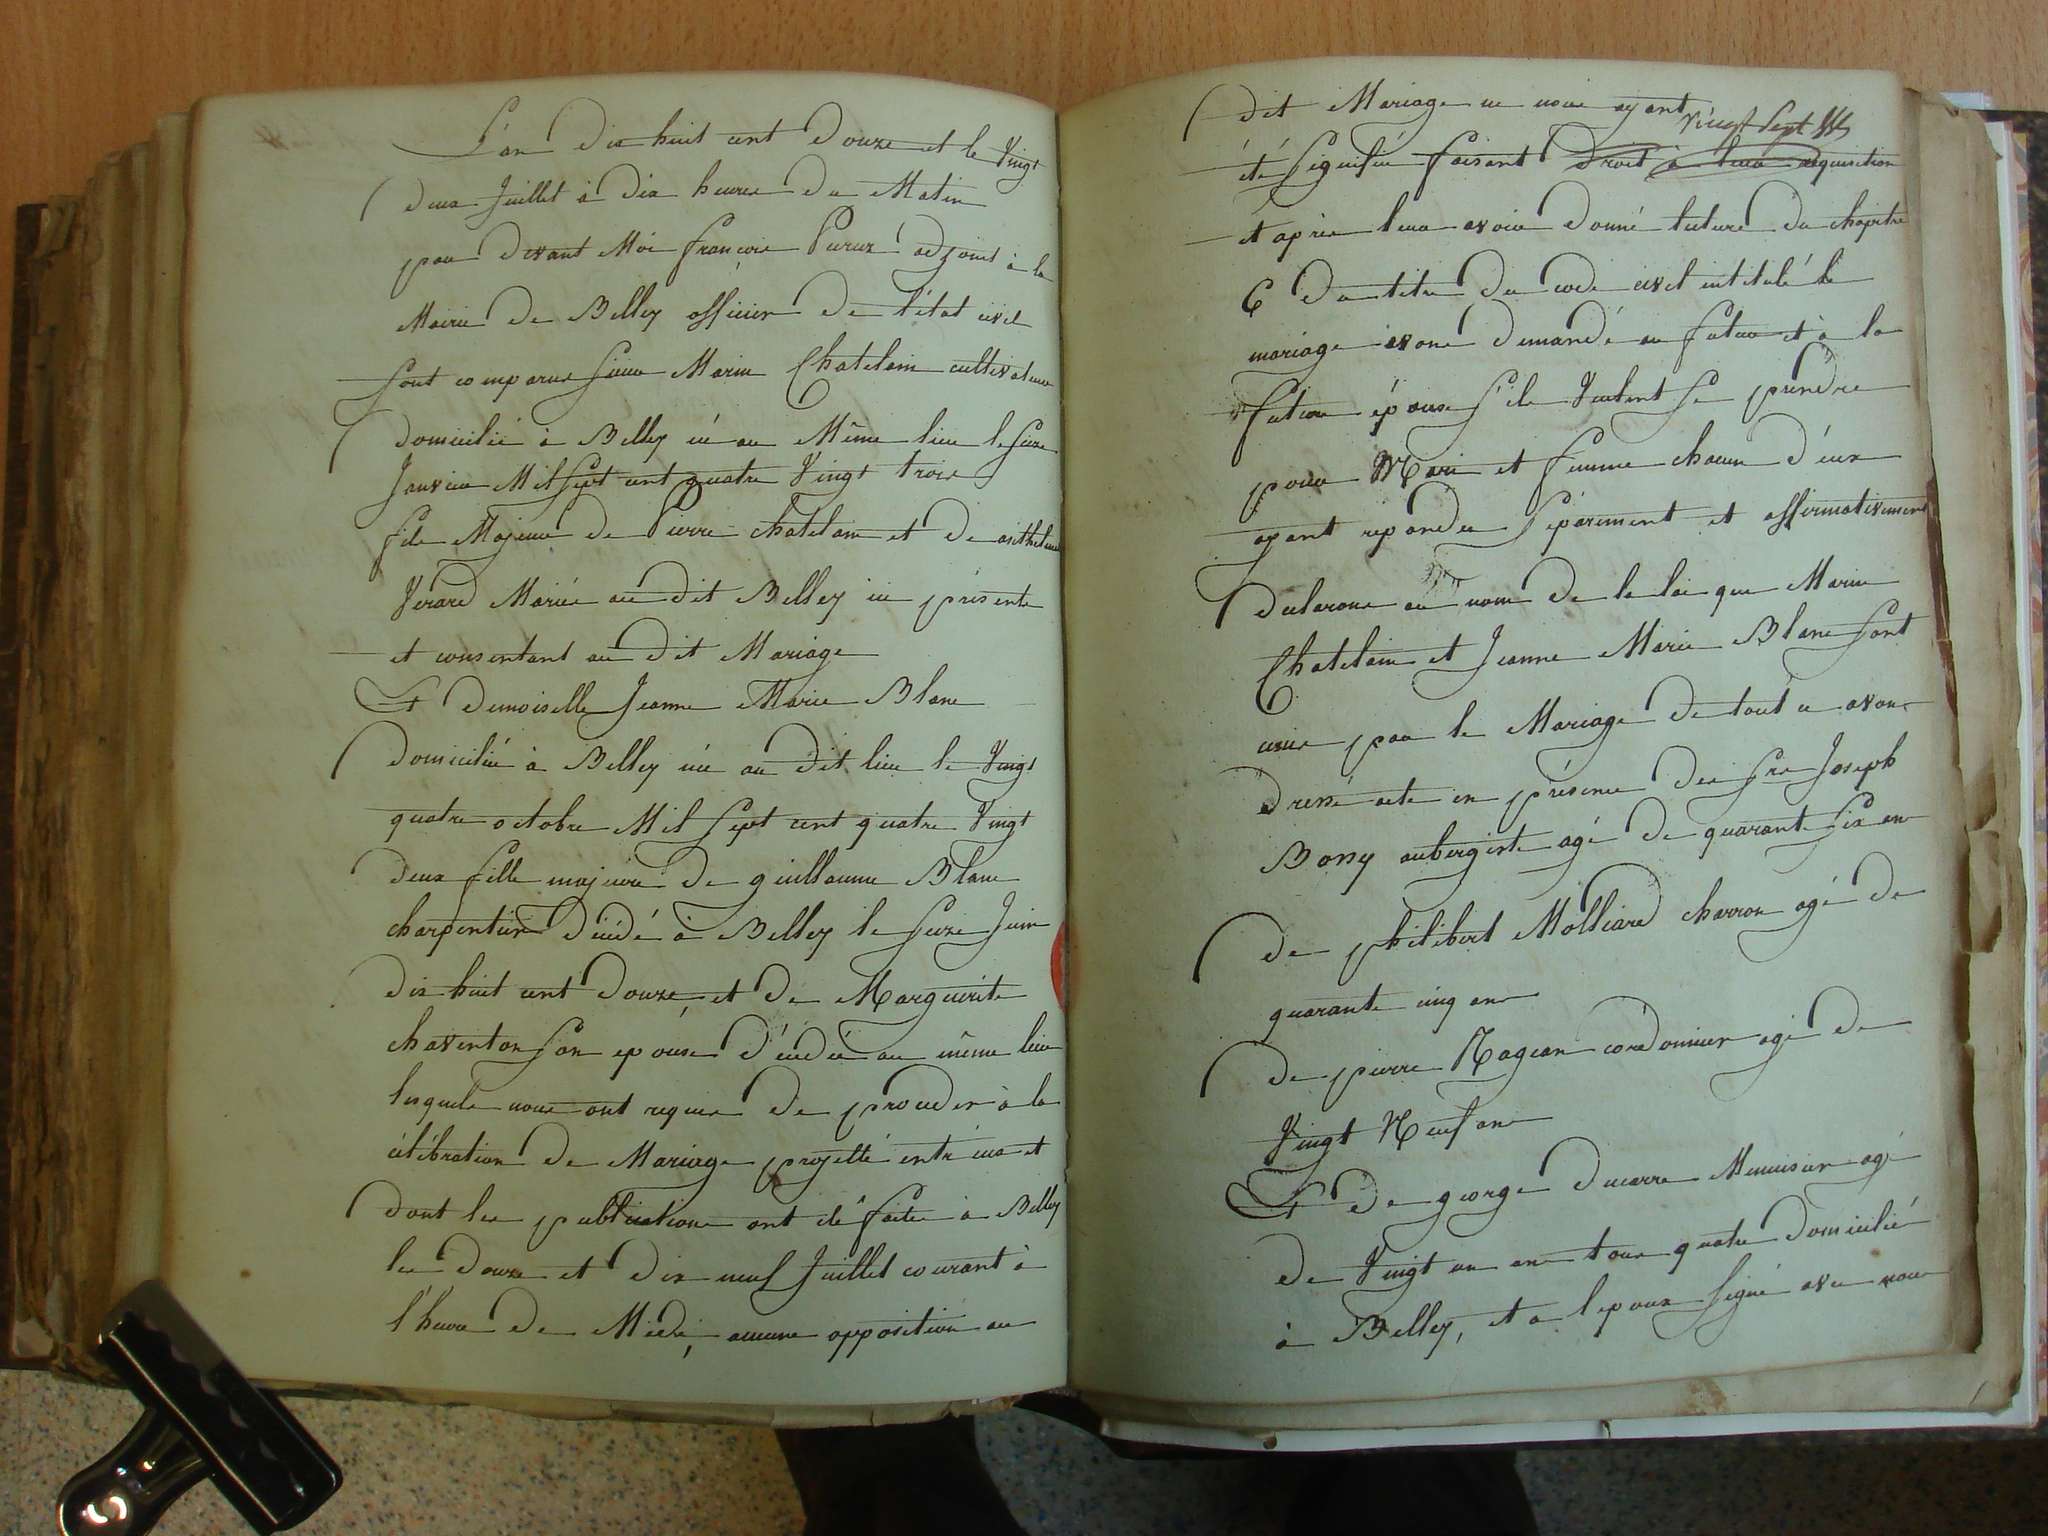 L'an dix huit cent douze et le Vingt
deux Juillet à dix heures du Matin
par devant Moi françois Parux adjoint à la
Mairie de Belley officier de l'état civil
sont comparus sieur Marin Chatelain cultivateur
domicilié à Belley né au Même lieu le seize
Janvier Mil sept cent quatre Vingt trois
fils Majeur de Pierre chatelain et de anthelmee
Verard Mariés au dit Belley ici présents
et consentant au dit Mariage
Et demoiselle Jeanne Marie Blanc
domiciliée à Belley née au dit lieu le Vingt
quatre octobre Mil sept cent quatre Vingt
deux fille majeure de guillaume Blanc
charpentier décédé à Belley le seize Juin
dix huit cent douze, et de Marguerite
chaventon son épouse décédée au même lieu
lesquels nous ont requis de proceder à la
célébration de Mariage projetté entr'eux et
dont les publications ont été faites à Belley
les douze et dix neuf Juillet courant à
l'heure de Midi, aucune opposition au
dit Mariage ne nous ayant
Vingt sept
été signifiée faisant droit à leur requisition
et après leur avoir donné lecture du chapitre
6 du titre du code civil intitulé le
mariage avons demandé au futur et à la
future épouse s'ils Veulent se prendre
pour Mari et femme chacun d'eux
ayant repondu séparément et affirmativement
declarons au nom de la loi que Marin
Chatelain et Jeanne Marie Blanc sont
unis par le Mariage de tout ce avons
dressé acte en présence des srs Joseph
Bony aubergiste agé de quarante six ans
de philibert Molliard charron agé de
quarante cinq ans
de pierre Nagean cordonnier agé de
Vingt Neuf ans
Et de george ducarre Menuisier agé
de Vingt un ans tous quatre domiciliés
à Belley, et a l'epoux signé avec nous